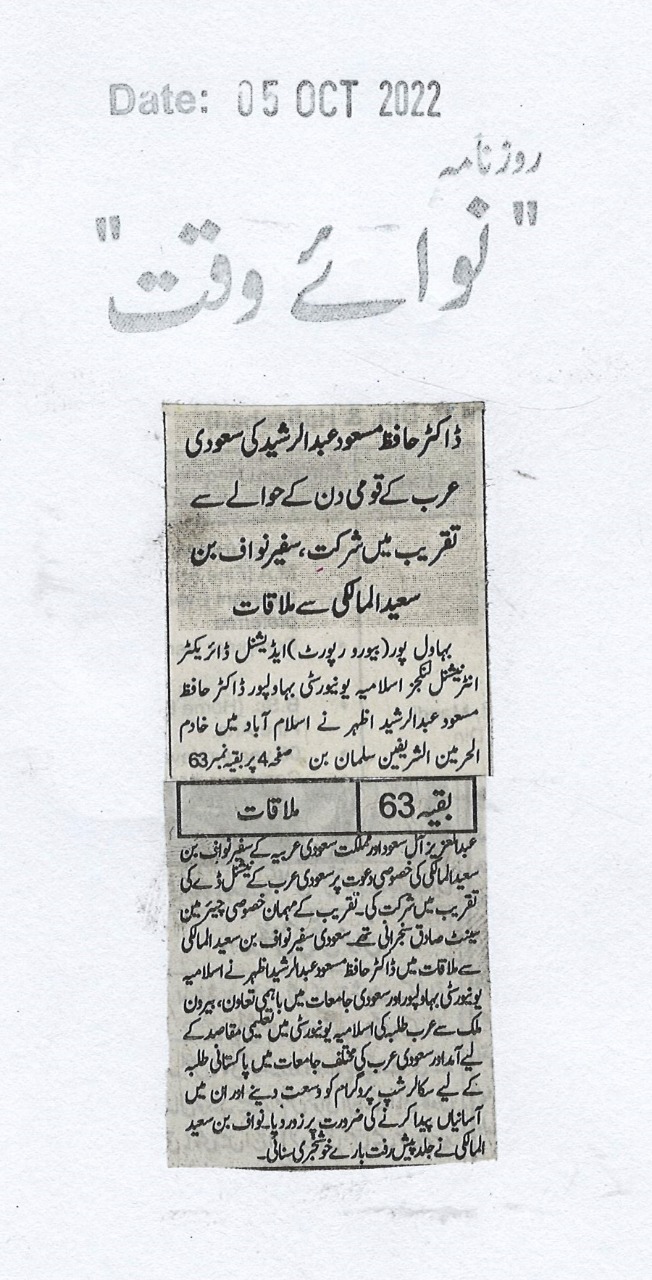 Date: 05 OCT 2022
روزنامہ
"نوائے وقت"
ڈاکٹر حافظ مسعود عبدالرشید کی سعودی
عرب کے قومی دن کے حوالے سے
تقریب میں شرکت، سفیر نواف بن
سعید المالکی سے ملاقات
بہاول پور (بیورو رپورٹ) ایڈیشنل ڈائریکٹر
انٹرنیشنل لنکجز اسلامیہ یونیورسٹی بہاولپور ڈاکٹر حافظ
مسعود عبدالرشید اظہر نے اسلام آباد میں خادم
الحرمین الشریفین سلمان بن صفحہ 4 پر بقیہ نمبر 63
بقیہ 63 ملاقات
عبدالعزیز آل سعود اور مملکت سعودی عربیہ کے سفیر نواف بن
سعید المالکی کی خصوصی دعوت پر سعودی عرب کے نیشنل ڈے کی
تقریب میں شرکت کی۔ تقریب کے مہمان خصوصی چیئرمین
سینٹ صادق سنجرانی تھے۔ سعودی سفیر نواف بن سعید المالکی
سے ملاقات میں ڈاکٹر حافظ مسعود عبدالرشید اظہر نے اسلامیہ
یونیورسٹی بہاولپور اور سعودی جامعات میں باہمی تعاون، بیرون
ملک سے عرب طلبہ کی اسلامیہ یونیورسٹی میں تعلیمی مقاصد کے
لیے آمد اور سعودی عرب کی مختلف جامعات میں پاکستانی طلبہ
کے لیے سکالر شپ پروگرام کو وسعت دینے اور ان میں
آسانیاں پیدا کرنے کی ضرورت پر زور دیا۔ نواف بن سعید
المالکی نے جلد پیش رفت بارے خوشخبری سنائی۔